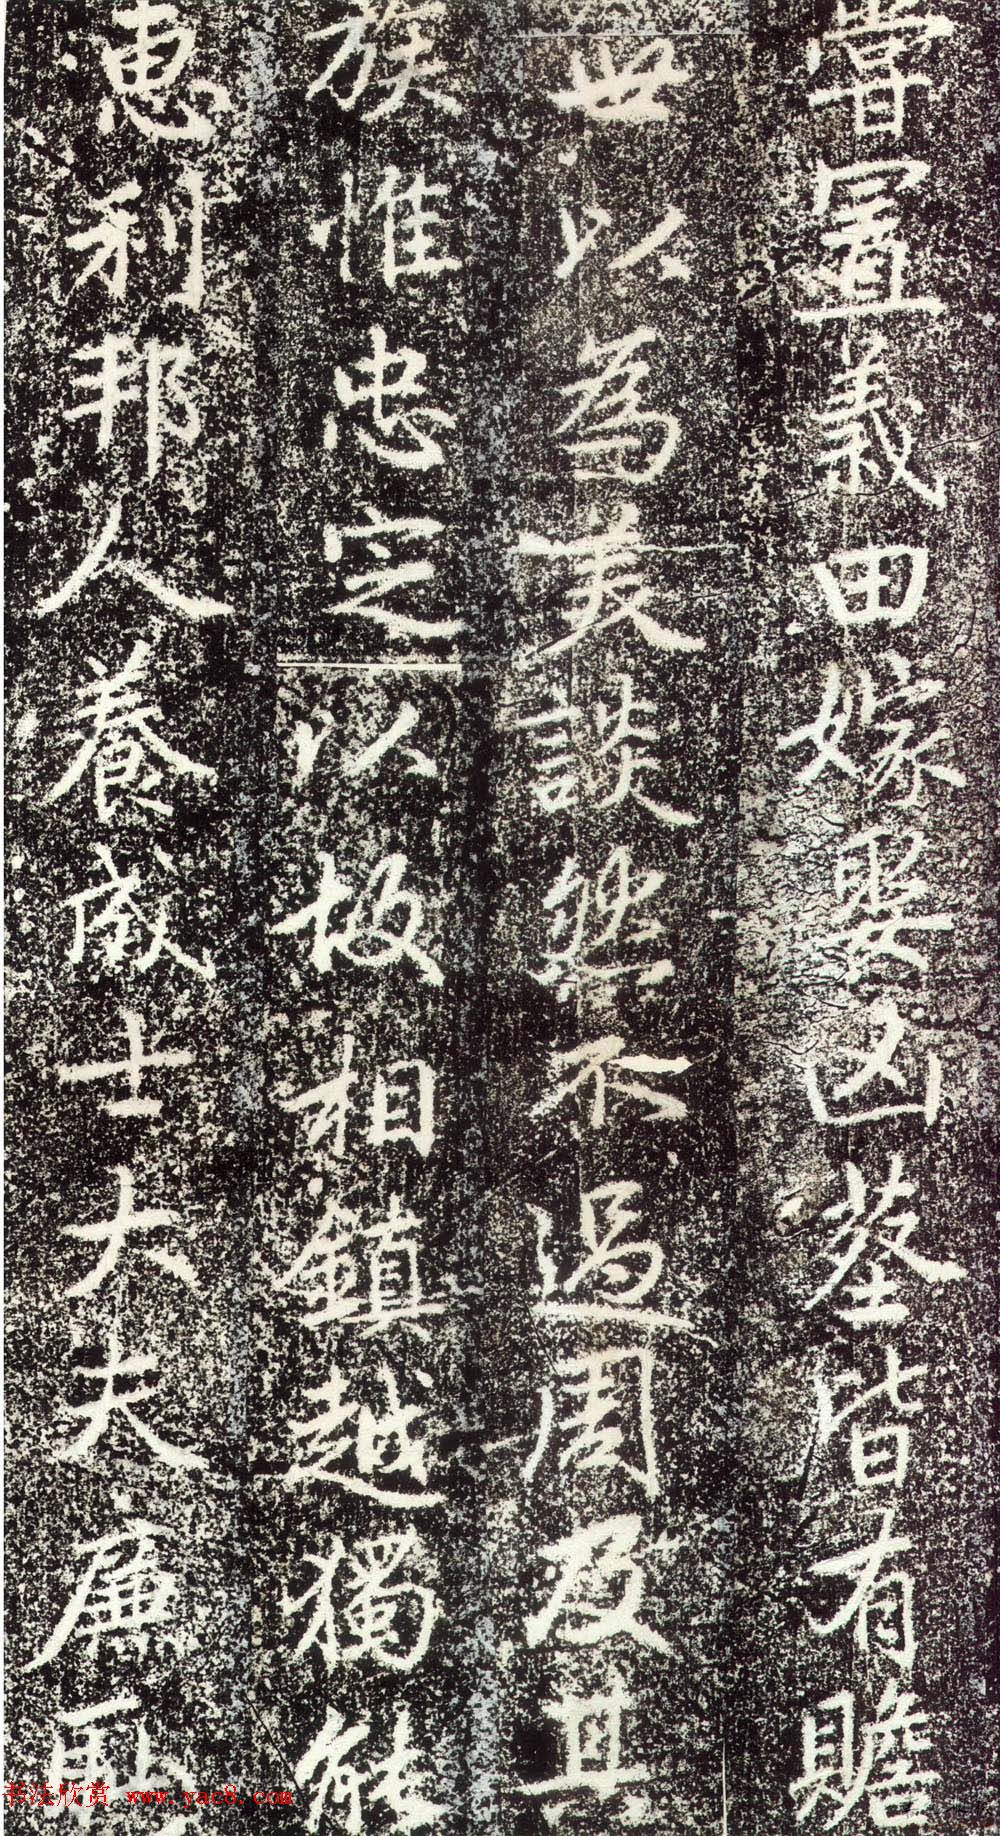 嘗置義田嫁娶凶葬皆有贍
世以為美談然不過周及其
族惟忠定以故相鎮越獨能
惠利邦人養成士大夫廉恥
书法欣赏 www.yac8.com